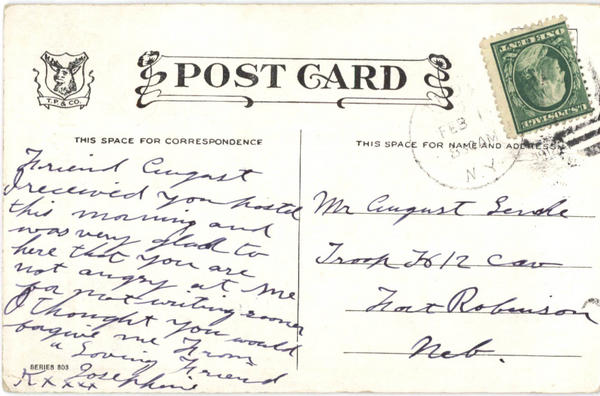 T.P. & CO.
POST CARD
U.S. POSTAGE
ONE CENT
FEB
AM
N.Y.
THIS SPACE FOR CORRESPONDENCE
Friend August
I received you postel
this morning and
was very glad to
here that you are
not angry at me
for not writing sooner
I thought you would
forgive me From
a Loving Friend
Josephine
XXXXX
SERIES 803
THIS SPACE FOR NAME AND ADDRESS
Mr August
Troop K 12 Cav
Fort Robinson
Neb.